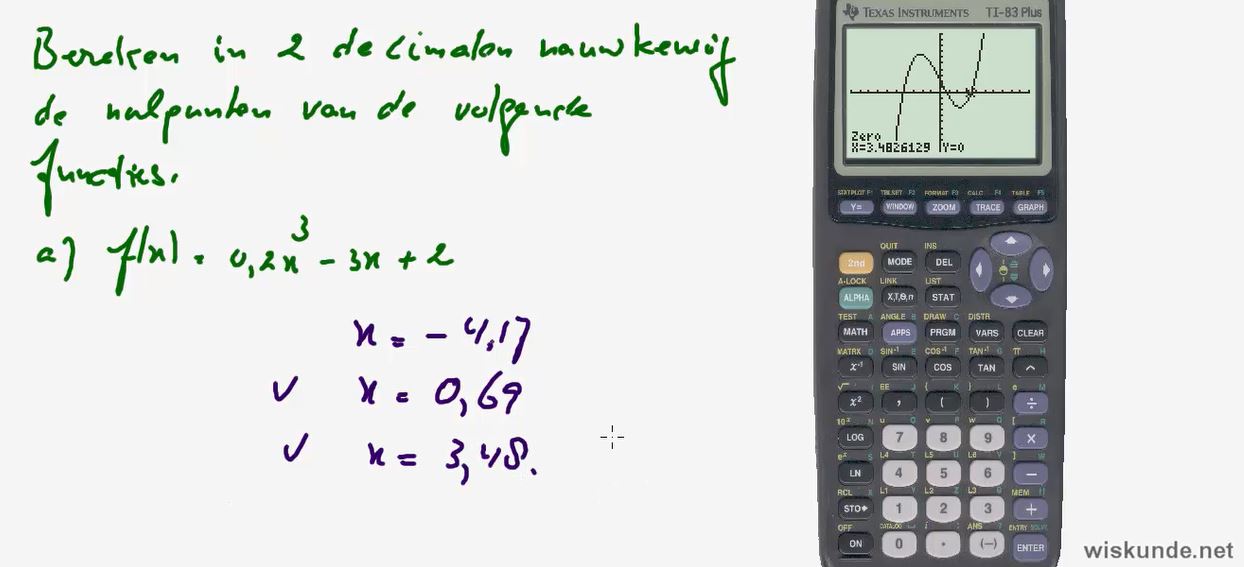 Bereken in 2 decimalen nauwkeurig
de nulpunten van de volgende
functies.
a) f(x) = 0,2x³ - 3x + 2
x = - 4,17
✓ x = 0,69
✓ x = 3,48.
TEXAS INSTRUMENTS TI-83 Plus
Zero
X=3.4826129 Y=0
STATPLOT F1 TBLSET F2 FORMAT F3 CALC F4 TABLE F5
Y= WINDOW ZOOM TRACE GRAPH
QUIT INS
2nd MODE DEL
A-LOCK LINK LIST
ALPHA X,T,Θ,n STAT
TEST A ANGLE B DRAW C DISTR
MATH APPS PRGM VARS CLEAR
MATRX D SIN⁻¹ E COS⁻¹ F TAN⁻¹ G π H
x⁻¹ SIN COS TAN ^
√ I EE J { K } L e M
x² , ( ) ÷
10ˣ N u O v P w Q [ R
LOG 7 8 9 ×
eˣ S L4 T L5 U L6 V ] W
LN 4 5 6 −
RCL X L1 Y L2 Z L3 θ MEM "
STO▸ 1 2 3 +
OFF CATALOG i : ANS ? ENTRY SOLVE
ON 0 . (−) ENTER
wiskunde.net